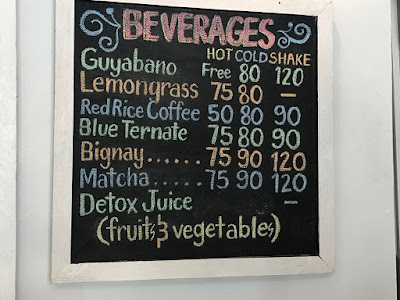 BEVERAGES
HOT COLD SHAKE
Guyabano Free 80 120
Lemongrass 75 80 —
Red Rice Coffee 50 80 90
Blue Ternate 75 80 90
Bignay ...... 75 90 120
Matcha ..... 75 90 120
Detox Juice
(fruits & vegetables)